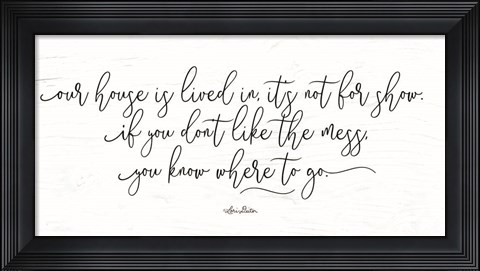 our house is lived in, it's not for show.
if you don't like the mess,
you know where to go.